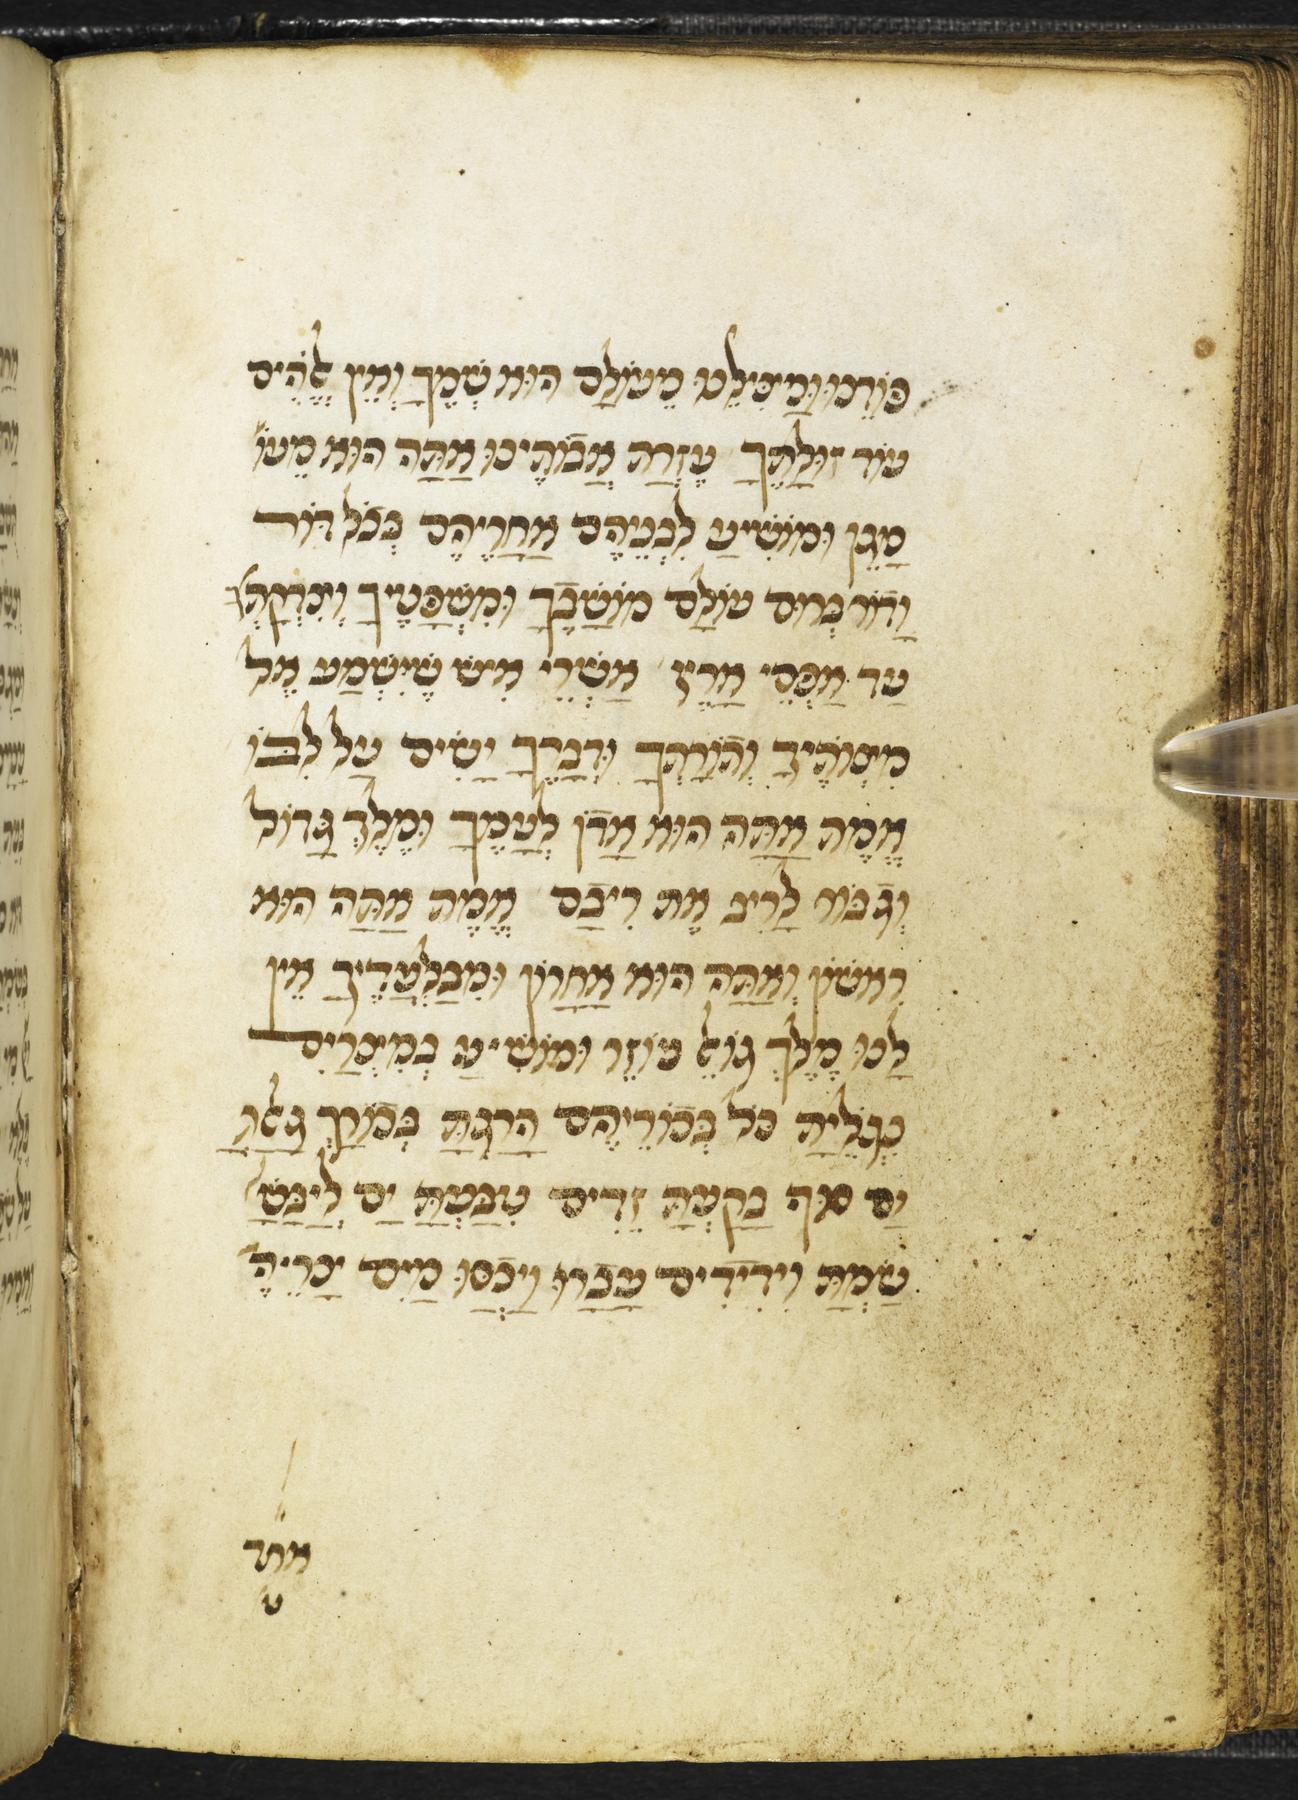 פּוֹדֵנוּ וּמַצִּילֵנוּ מֵעוֹלָם הוּא שְׁמֶךָ וְאֵין אֱלֹהִים
עוֹד זוּלָתֶךָ עֶזְרַת אֲבוֹתֵינוּ אַתָּה הוּא מֵעוֹ׳
מָגֵן וּמוֹשִׁיעַ לִבְנֵיהֶם אַחֲרֵיהֶם בְּכָל דּוֹר
וָדוֹר בְּרוּם עוֹלָם מוֹשָׁבֶךָ וּמִשְׁפָּטֶיךָ וְצִדְקָתְךָ
עַד אַפְסֵי אָרֶץ אַשְׁרֵי אִישׁ שֶׁיִּשְׁמַע אֶל
מִצְוֹתֶיךָ וְתוֹרָתְךָ וּדְבָרְךָ יָשִׂים עַל לִבּוֹ
אֱמֶת אַתָּה הוּא אָדוֹן לְעַמֶּךָ וּמֶלֶךְ גָּדוֹל
וְגִבּוֹר לָרִיב אֶת רִיבָם אֱמֶת אַתָּה הוּא
רִאשׁוֹן וְאַתָּה הוּא אַחֲרוֹן וּמִבַּלְעָדֶיךָ אֵין
לָנוּ מֶלֶךְ גּוֹאֵל עוֹזֵר וּמוֹשִׁיעַ בְּמִצְרַיִם
נִגְלֵיתָ כָּל בְּכוֹרֵיהֶם הָרַגְתָּ בְּכוֹרְךָ גָּאַלְתָּ
יַם סוּף בָּקַעְתָּ זֵדִים טִבַּעְתָּ יָם לְיַבָּשָׁ׳
שַׂמְתָּ וִידִידִים עָבָרוּ וַיְכַסּוּ מַיִם צָרֵיהֶ׳
אחד